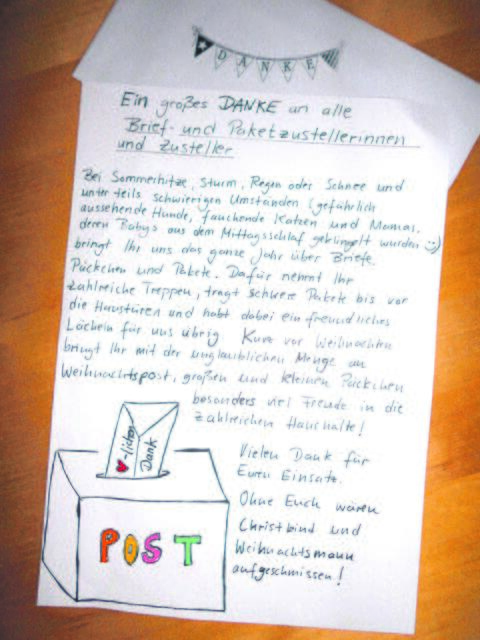 DANKE
Ein großes DANKE an alle
Brief- und Paketzustellerinnen
und Zusteller
Bei Sommerhitze, Sturm, Regen oder Schnee und
unter teils schwierigen Umständen (gefährlich
aussehende Hunde, fauchende Katzen und Mamas,
deren Babys aus dem Mittagsschlaf geklingelt wurden :))
bringt Ihr uns das ganze Jahr über Briefe,
Päckchen und Pakete. Dafür nehmt Ihr
zahlreiche Treppen, tragt schwere Pakete bis vor
die Haustüren und habt dabei ein freundliches
Lächeln für uns übrig. Kurz vor Weihnachten
bringt Ihr mit der unglaublichen Menge an
Weihnachtspost, großen und kleinen Päckchen
besonders viel Freude in die
zahlreichen Haushalte!
♥-lichen
Dank
Vielen Dank für
Euren Einsatz.
Ohne Euch wären
Christkind und
Weihnachtsmann
aufgeschmissen!
POST